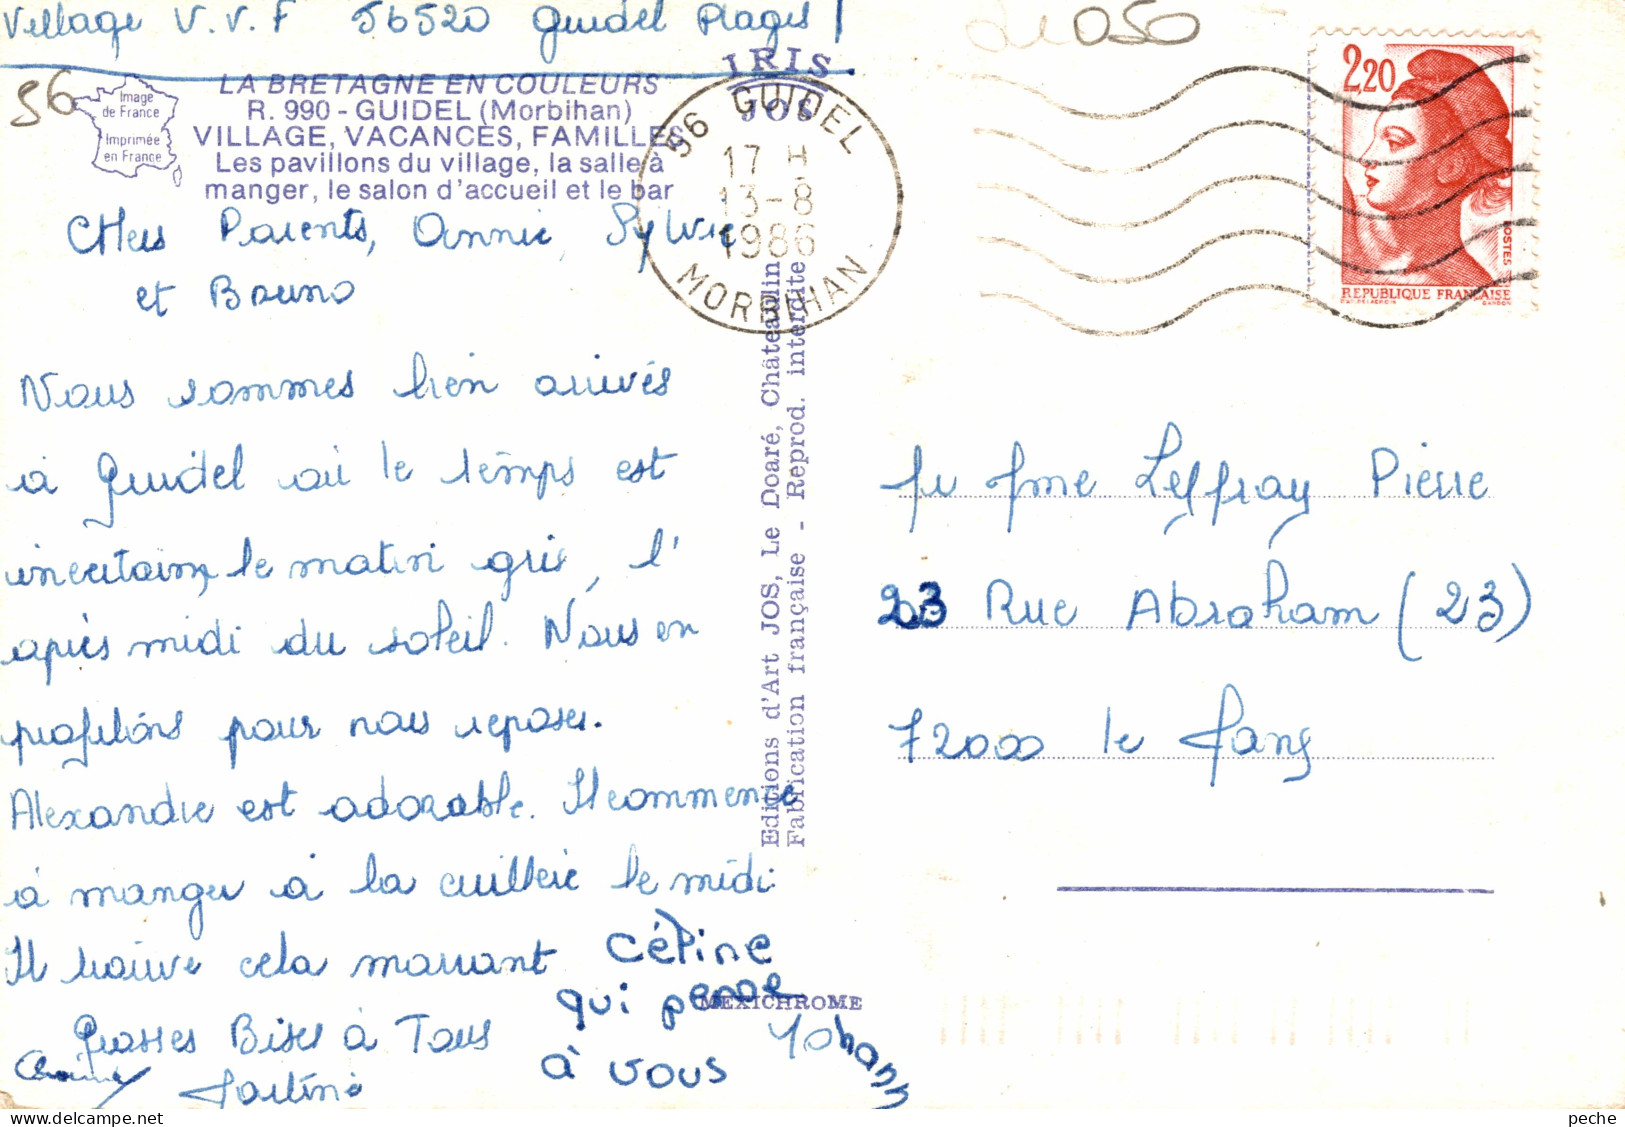 Village V.V.F 56520 Guidel Plages
56
Image
de France
Imprimée
en France
LA BRETAGNE EN COULEURS
R. 990 - GUIDEL (Morbihan)
VILLAGE, VACANCES, FAMILLES
Les pavillons du village, la salle à
manger, le salon d'accueil et le bar
IRIS
JOS
56 GUIDEL
17 H
13-8
1986
MORBIHAN
050
2,20
POSTES
REPUBLIQUE FRANÇAISE
CHers Parents, Annie, Sylvie
et Bruno
Nous sommes bien arrivés
à Guidel où le temps est
incertain, le matin gris, l'
après midi du soleil. Nous en
profitons pour nous reposer.
Alexandre est adorable. Il commence
à manger à la cuillère le midi
Il trouve cela marrant
Grosses Bises à Tous
Martine
Céline
qui pense
à vous
Yohann
Editions d'Art JOS, Le Doaré, Châteaulin
Fabrication française - Reprod. interdite
MEXICHROME
Mr Mme Leffray Pierre
23 Rue Abraham (23)
72000 le Mans
peche